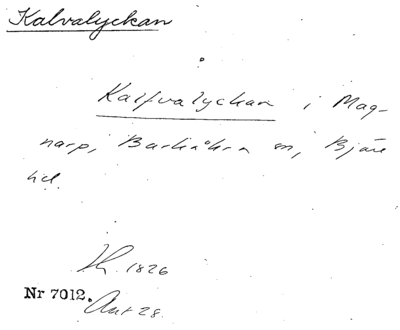 Kalvalyckan
Kalfvalyckan i Mag-
narp, Barkåkra sn, Bjäre
hd.
Lh. 1826
Nr 7012.
Ant 28.